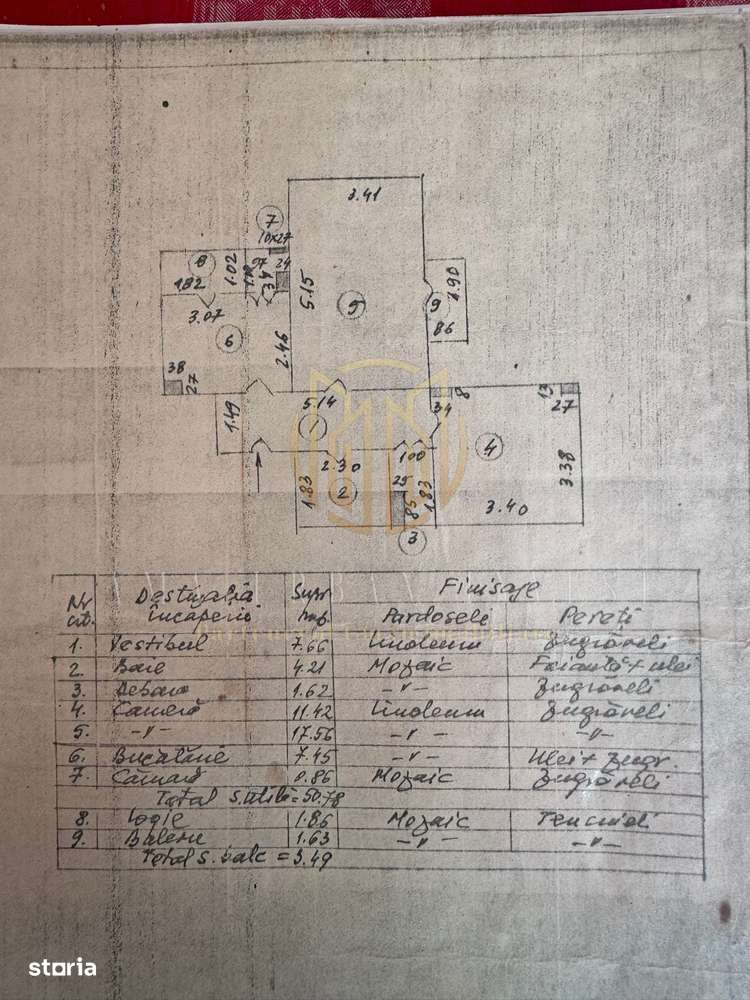 3.41
7
10x27
8
1.02
97
24
1.82
34
5.15
5
1.90
9
3.07
86
6
2.46
38
27
34
8
13
27
5.14
1.49
1
100
4
2.30
3.38
1.83
2
25
85
1.83
3.40
3
Nr crt. Destinatia încaperii Supr Finisaje
Pardoseli Pereți
1. Vestibul 7.66 Linoleum Zugrăveli
2. Baie 4.21 Mozaic Faianță + ulei
3. Debara 1.62 -"- Zugrăveli
4. Cameră 11.42 Linoleum Zugrăveli
5. -"- 17.56 -"- -"-
6. Bucătărie 7.45 -"- Ulei + zugr.
7. Cămară 0.86 Mozaic Zugrăveli
Total s. utilă = 50.78
8. Logie 1.86 Mozaic Tencuieli
9. Balcon 1.63 -"- -"-
Total s. balc = 3.49
storia